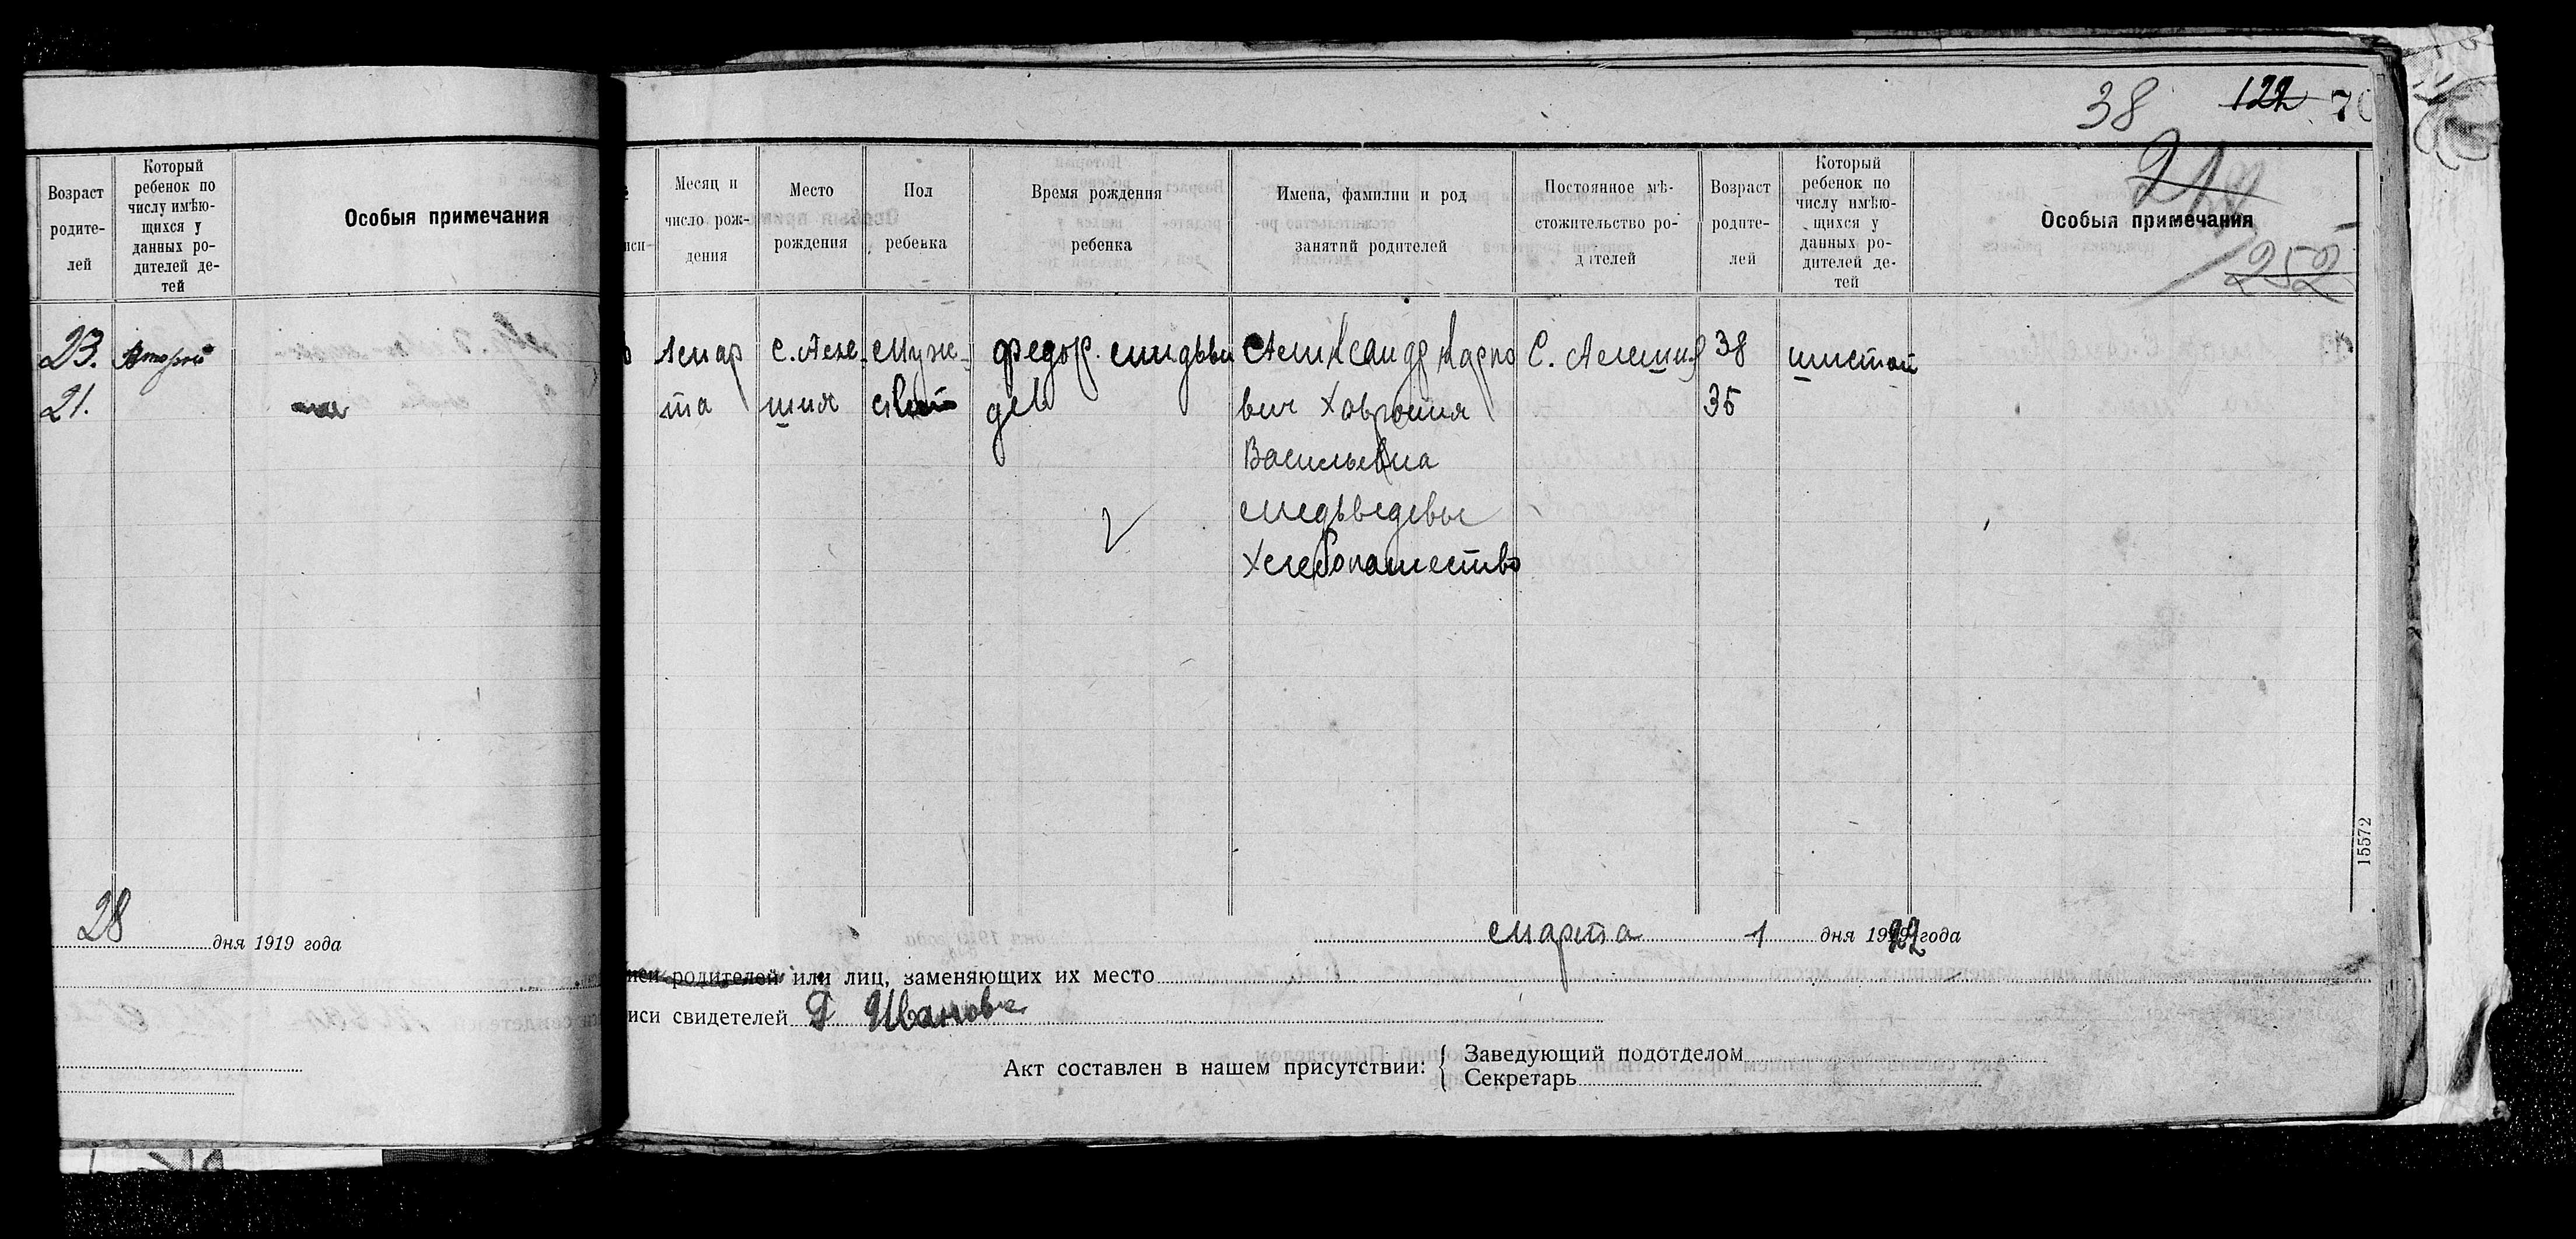 Возраст
родите-
лей
Который
ребенок по
числу имѣю-
щихся у
данных ро-
дителей де-
тей
Особыя примечания
23.
второй
21.
28 дня 1919 года
38
122
70
21
252
Месяц и
число рож-
дения
Место
рождения
Пол
ребенка
Время рождения
ребенка
Имена, фамилии и род
занятий родителей
Постоянное мѣ-
стожительство ро-
дителей
Возраст
родите-
лей
Который
ребенок по
числу имѣю-
щихся у
данных ро-
дителей де-
тей
Особыя примечания
1 мар
та
с. Але
шня
муже
ской
Федор
дев
Александр Карпо
вич Хаврония
Васильевна
Медьведевы
Хлебопашество
С. Алешня
38
35
шестой
15572
марта 1 дня 1922 года
иси родителей или лиц, заменяющих их место
иси свидетелей Иванов
Акт составлен в нашем присутствии:
Заведующий подотделом
Секретарь